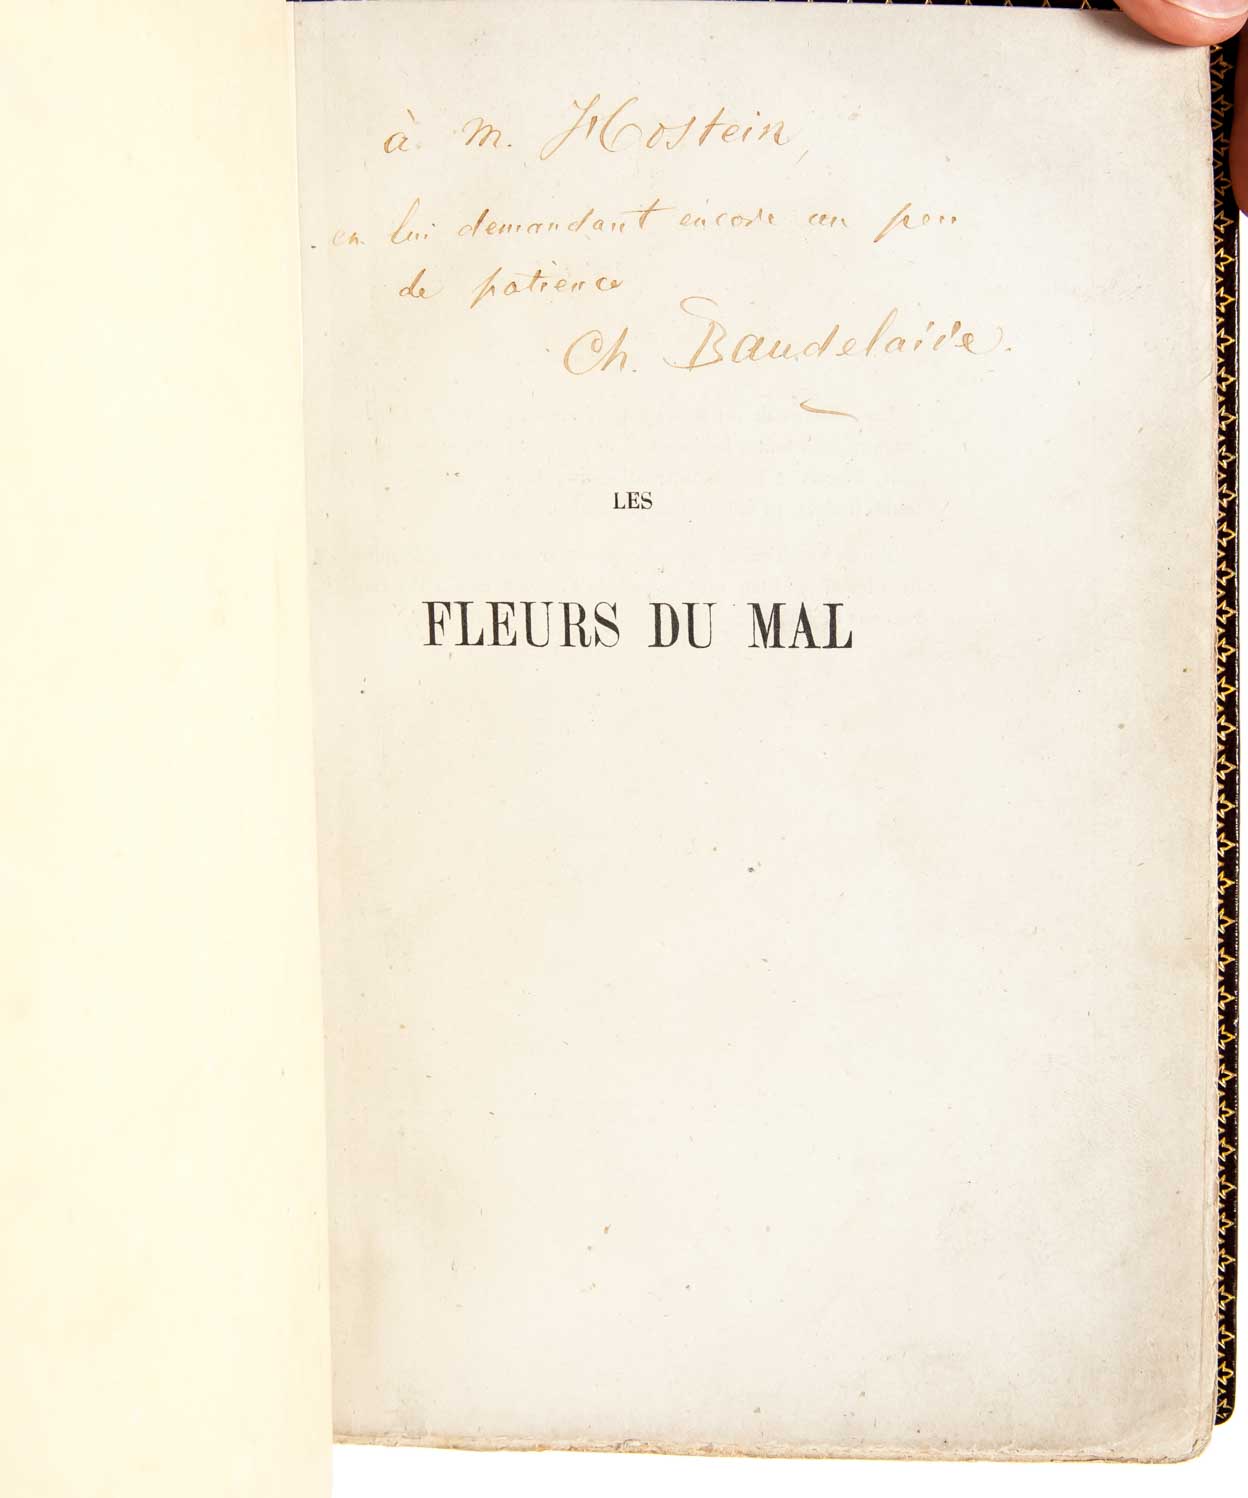 à M. Hostein,
en lui demandant encore un peu
de patience
Ch. Baudelaire.
LES
FLEURS DU MAL